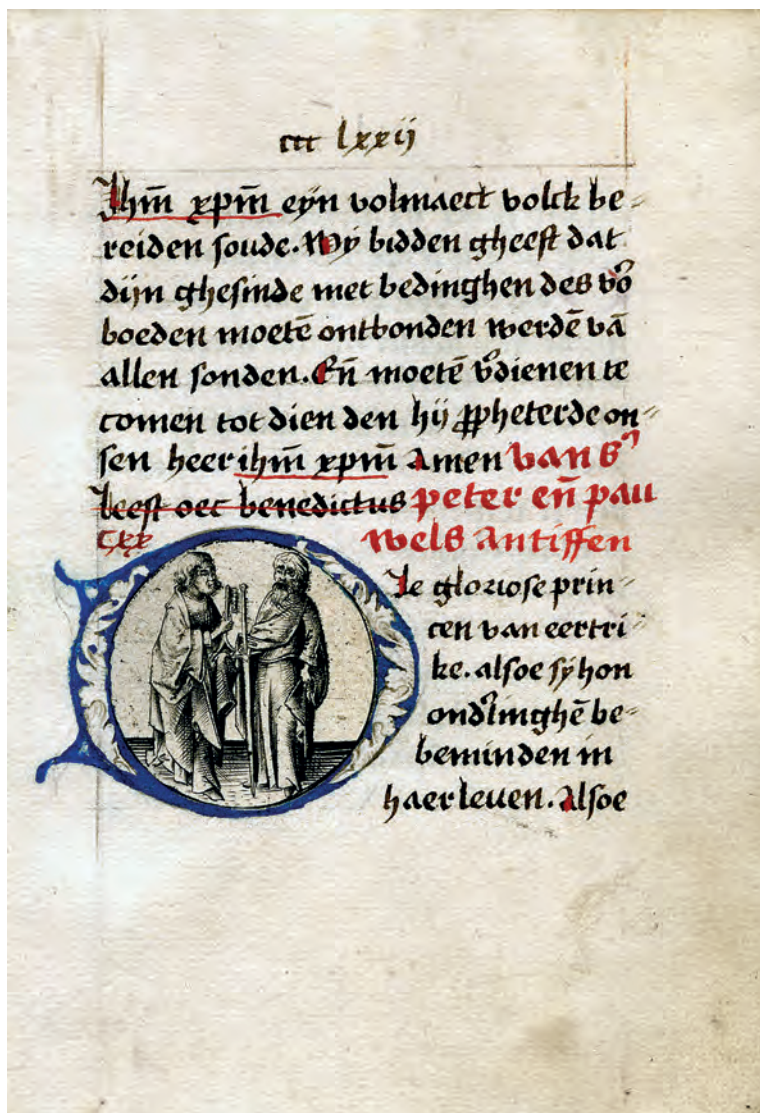 ccc lxxij
Jhm̄ xpm̄ eyn volmaect volck be⸗
reiden soude. Wÿ bidden gheest dat
dijn ghesinde met bedinghen des vo᷒
boeden moetē ontbonden werdē vā
allen sonden. Eñ moetē v᷒dienen te
comen tot dien den hij ꝓpheterde on⸗
sen heer ihm̄ xpm̄ Amen van s᷒
leest oec benedictus peter eñ pau
cxx wels Antiffen
Die gloriose prin⸗
cen van eertri
ke. alsoe sÿ hon
ond᷒linghē be⸗
beminden in
haer leuen. Alsoe